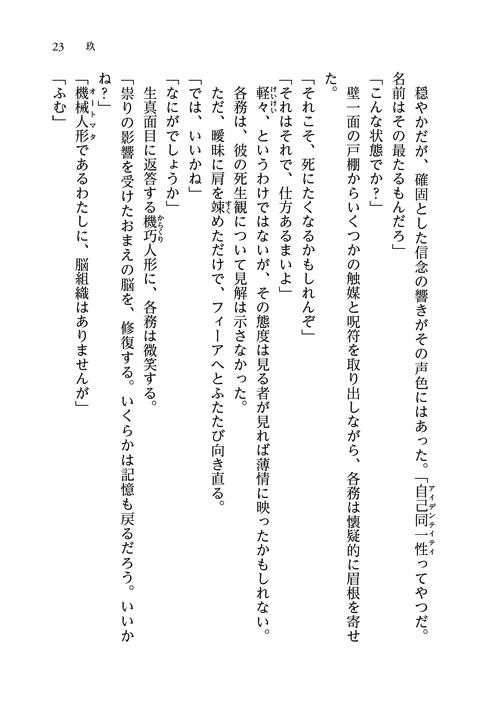 23　玖
　穏やかだが、確固とした信念の響きがその声色にはあった。「自己同一性ってやつだ。
名前はその最たるもんだろ」
「こんな状態でか？」
　壁一面の戸棚からいくつかの触媒と呪符を取り出しながら、各務は懐疑的に眉根を寄せ
た。
「それこそ、死にたくなるかもしれんぞ」
「それはそれで、仕方あるまいよ」
　軽々、というわけではないが、その態度は見る者が見れば薄情に映ったかもしれない。
　各務は、彼の死生観について見解は示さなかった。
　ただ、曖昧に肩を竦めただけで、フィーアへとふたたび向き直る。
「では、いいかね」
「なにがでしょうか」
　生真面目に返答する機巧人形に、各務は微笑する。
「祟りの影響を受けたおまえの脳を、修復する。いくらかは記憶も戻るだろう。いいか
ね？」
「機械人形であるわたしに、脳組織はありませんが」
「ふむ」
アイデンティティ
けいけい
すく
からくり
オートマタ